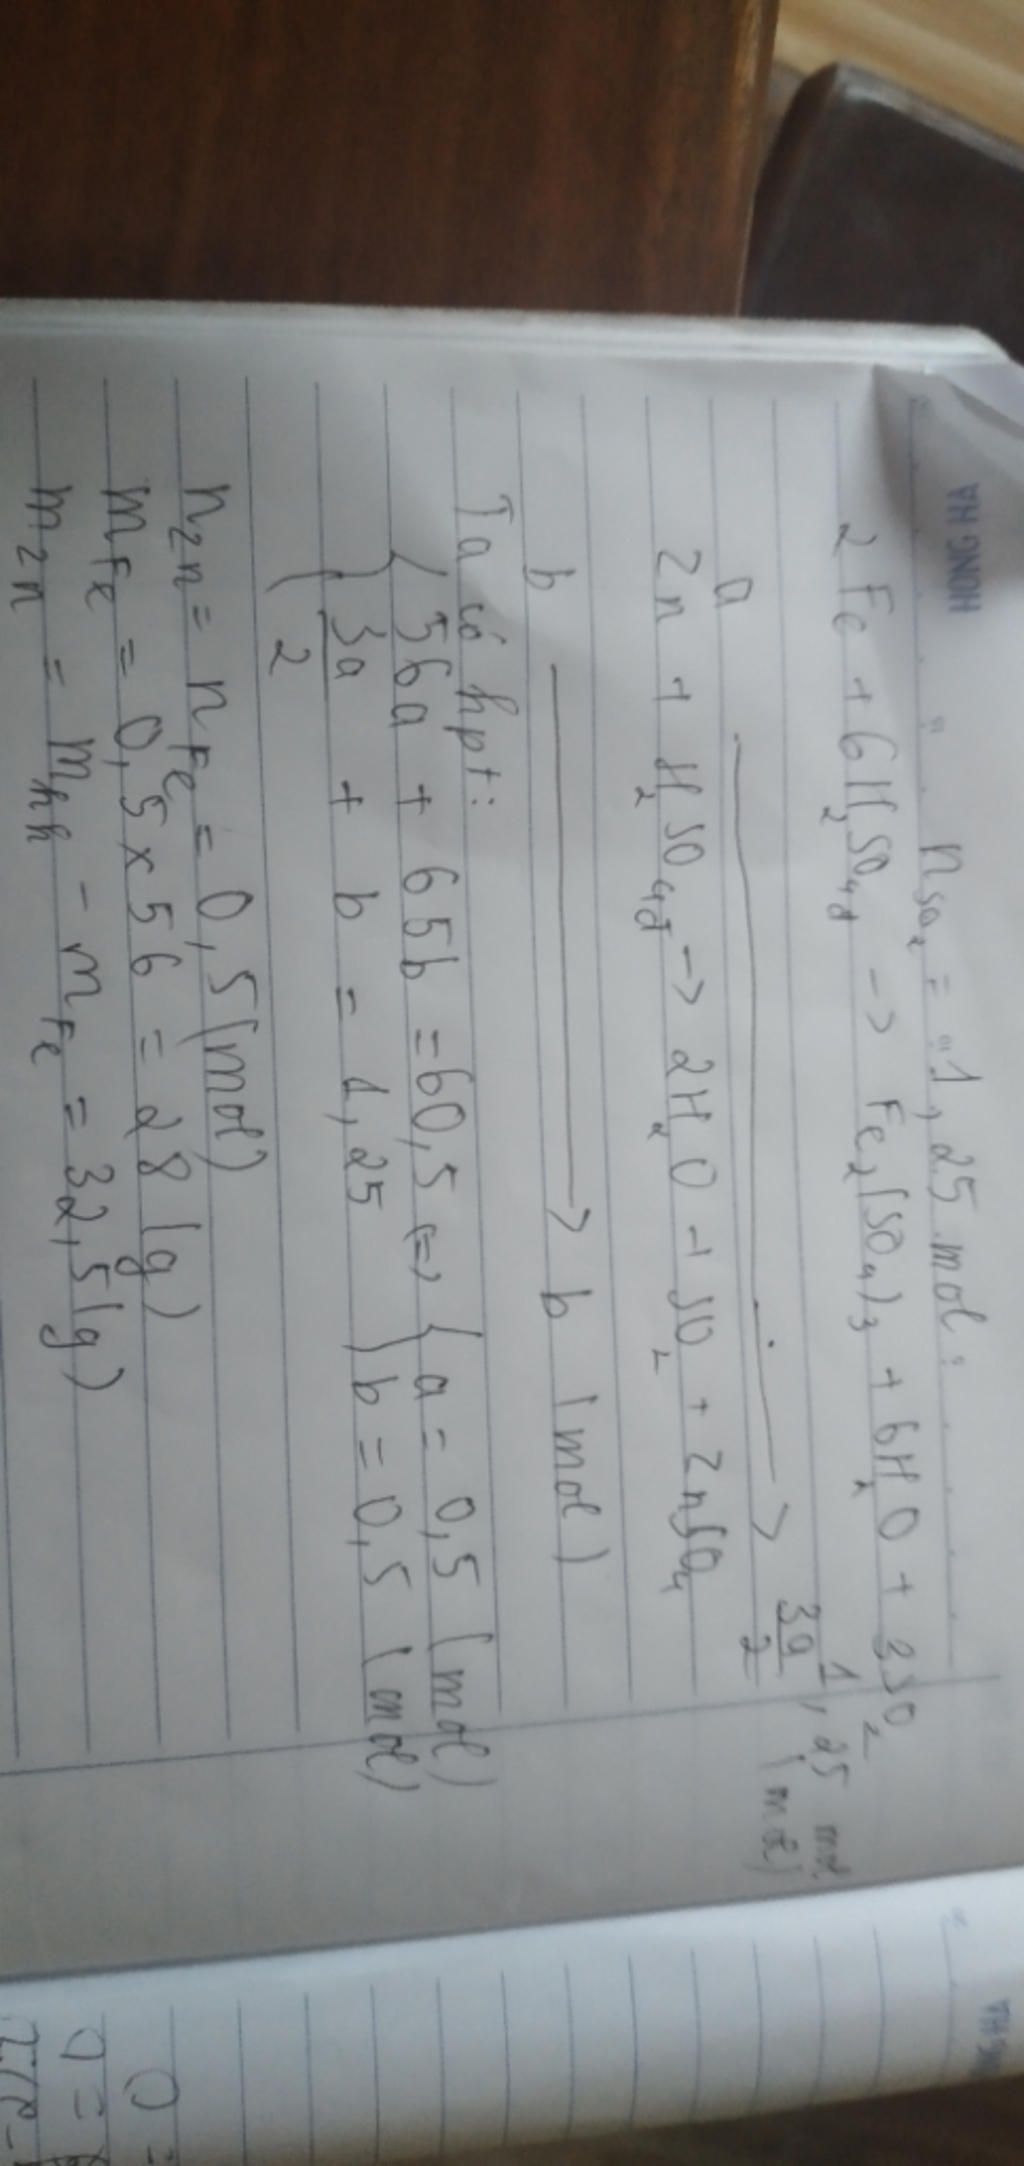 HONG HA
n SO₂ = 1,25 mol:
2 Fe + 6H₂SO₄đ -> Fe₂(SO₄)₃ + 6H₂O + 3SO₂
1,25 mol
a -> 3a/2 (mol)
Zn + H₂SO₄đ -> 2H₂O + SO₂ + ZnSO₄
b -> b (mol)
Ta có hpt:
{ 56a + 65b = 60,5 <=> { a = 0,5 (mol)
{ 3a/2 + b = 1,25 { b = 0,5 (mol)
nZn = nFe = 0,5 (mol)
mFe = 0,5 x 56 = 28 (g)
mZn = mhh - mFe = 32,5 (g)